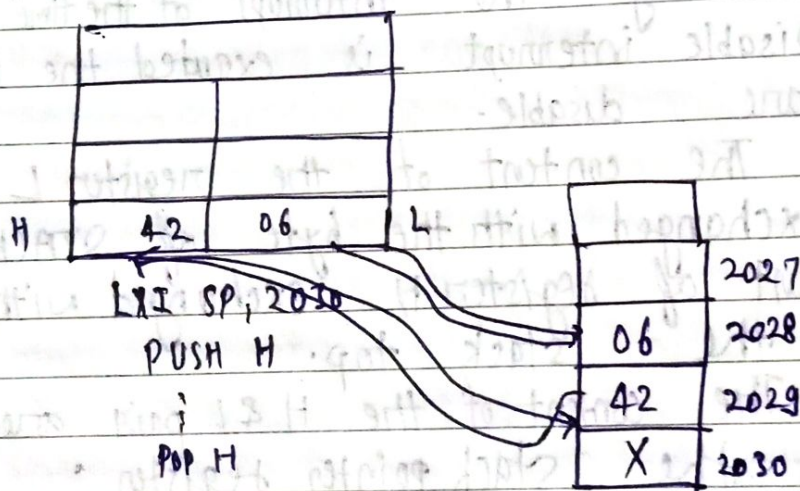 H 42 06 L
LXI SP, 2030
PUSH H
POP H
2027
06 2028
42 2029
X 2030